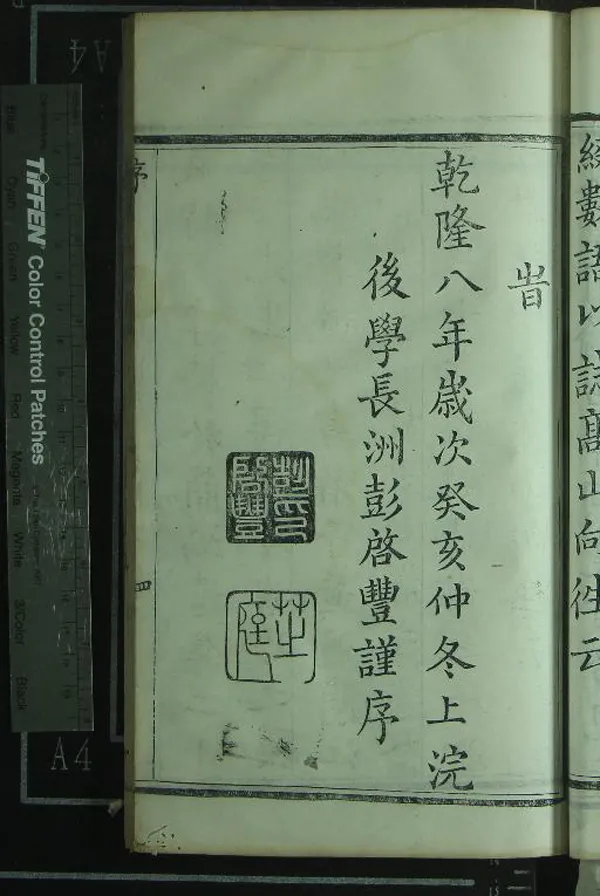 綴數語以誌髙山向徃云
旹
乾隆八年嵗次癸亥仲冬上浣
後學長洲彭啓豐謹序
彭印
啓豐
芝庭
序
四
TIFFEN Color Control Patches
Blue Cyan Green Yellow Red Magenta White 3/Color Black
A4
A4